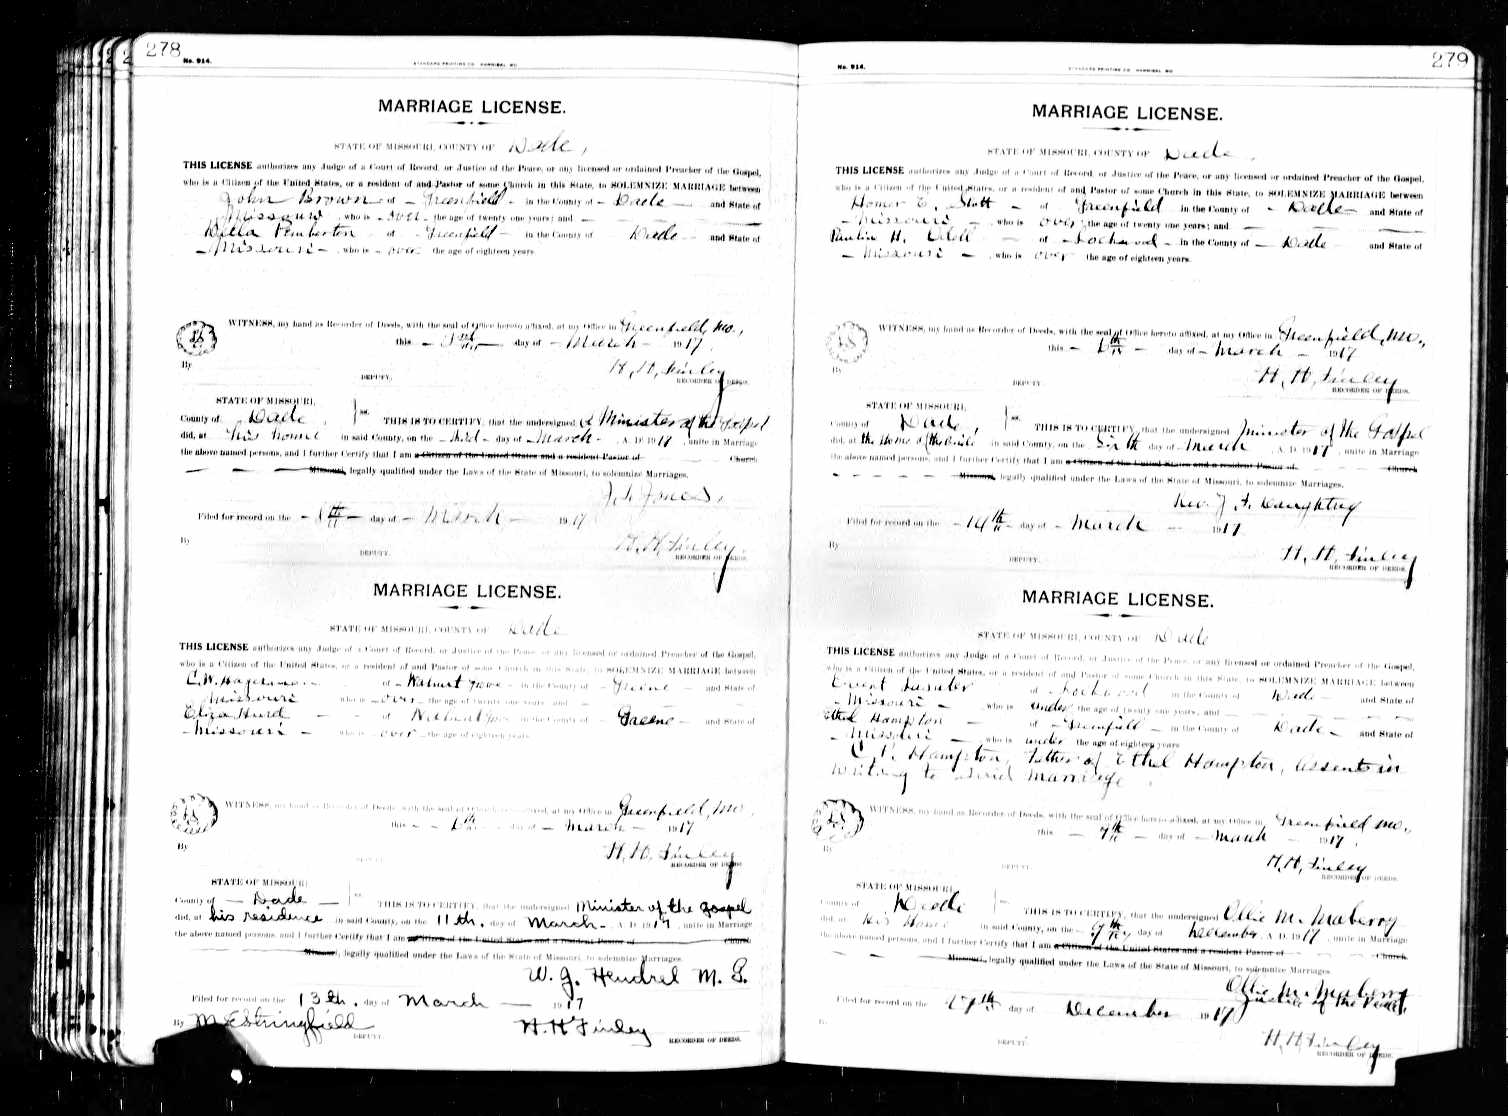 278
No. 914.
STANDARD PRINTING CO. HANNIBAL, MO.
MARRIAGE LICENSE.
STATE OF MISSOURI, COUNTY OF Dade,
THIS LICENSE authorizes any Judge of a Court of Record, or Justice of the Peace, or any licensed or ordained Preacher of the Gospel,
who is a Citizen of the United States, or a resident of and Pastor of some Church in this State, to SOLEMNIZE MARRIAGE between
John Brown of Greenfield in the County of Dade and State of
Missouri, who is over the age of twenty one years; and
Della Pemberton of Greenfield in the County of Dade and State of
Missouri, who is over the age of eighteen years.
WITNESS, my hand as Recorder of Deeds, with the seal of Office hereto affixed, at my Office in Greenfield, Mo.,
this 3rd day of March 1917
H. H. Finley
By
DEPUTY. RECORDER OF DEEDS.
STATE OF MISSOURI,
County of Dade ss. THIS IS TO CERTIFY, that the undersigned a Minister of the Gospel
did, at his home in said County, on the third day of March, A. D. 1917, unite in Marriage
the above named persons, and I further Certify that I am a Citizen of the United States and a resident Pastor of Church
Missouri, legally qualified under the Laws of the State of Missouri, to solemnize Marriages.
Jones,
Filed for record on the day of March 1917
By H. H. Finley
DEPUTY. RECORDER OF DEEDS.
MARRIAGE LICENSE.
STATE OF MISSOURI, COUNTY OF Dade
THIS LICENSE authorizes any Judge of a Court of Record, or Justice of the Peace, or any licensed or ordained Preacher of the Gospel,
who is a Citizen of the United States, or a resident of and Pastor of some Church in this State, to SOLEMNIZE MARRIAGE between
C. W. Hagerman of Walnut Grove in the County of Greene and State of
Missouri who is over the age of twenty one years; and
Eliza Hurd of Walnut Grove in the County of Greene and State of
Missouri who is over the age of eighteen years.
WITNESS, my hand as Recorder of Deeds, with the seal of Office hereto affixed, at my Office in Greenfield, Mo.
this 6th day of March 1917
By H. H. Finley
DEPUTY. RECORDER OF DEEDS.
STATE OF MISSOURI,
County of Dade ss. THIS IS TO CERTIFY, that the undersigned Minister of the gospel
did, at his residence in said County, on the 11th. day of March A. D. 1917, unite in Marriage
the above named persons, and I further Certify that I am a Citizen of the United States and a resident Pastor of Church
Missouri, legally qualified under the Laws of the State of Missouri, to solemnize Marriages.
W. J. Hendrel M. G.
Filed for record on the 13th. day of March 1917
By M. E. Stringfield H. H. Finley
DEPUTY. RECORDER OF DEEDS.
279
No. 914.
STANDARD PRINTING CO. HANNIBAL, MO.
MARRIAGE LICENSE.
STATE OF MISSOURI, COUNTY OF Dade,
THIS LICENSE authorizes any Judge of a Court of Record, or Justice of the Peace, or any licensed or ordained Preacher of the Gospel,
who is a Citizen of the United States, or a resident of and Pastor of some Church in this State, to SOLEMNIZE MARRIAGE between
Homer E. Stott of Greenfield in the County of Dade and State of
Missouri, who is over the age of twenty one years; and
H. of Lockwood in the County of Dade and State of
Missouri, who is over the age of eighteen years.
WITNESS, my hand as Recorder of Deeds, with the seal of Office hereto affixed, at my Office in Greenfield, Mo.,
this 6th day of March 1917
By H. H. Finley
DEPUTY. RECORDER OF DEEDS.
STATE OF MISSOURI,
County of Dade, ss. THIS IS TO CERTIFY, that the undersigned Minister of the Gospel
did, at the home of the bride in said County, on the Sixth day of March A. D. 1917, unite in Marriage
the above named persons, and I further Certify that I am a Citizen of the United States and a resident Pastor of Church
Missouri, legally qualified under the Laws of the State of Missouri, to solemnize Marriages.
Rev. J. F. Daughtrey
Filed for record on the 14th day of March 1917
By H. H. Finley
DEPUTY. RECORDER OF DEEDS.
MARRIAGE LICENSE.
STATE OF MISSOURI, COUNTY OF Dade
THIS LICENSE authorizes any Judge of a Court of Record, or Justice of the Peace, or any licensed or ordained Preacher of the Gospel,
who is a Citizen of the United States, or a resident of and Pastor of some Church in this State, to SOLEMNIZE MARRIAGE between
of Lockwood in the County of Dade and State of
Missouri who is under the age of twenty one years; and
Ethel Hampton of Greenfield in the County of Dade and State of
Missouri who is under the age of eighteen years
Hampton, father of Ethel Hampton, assents in
writing to said marriage.
WITNESS, my hand as Recorder of Deeds, with the seal of Office hereto affixed, at my Office in Greenfield Mo.,
this 7th day of March 1917.
By H. H. Finley
DEPUTY. RECORDER OF DEEDS.
STATE OF MISSOURI,
County of Dade ss. THIS IS TO CERTIFY, that the undersigned Ollie M. Maberry
did, at his home in said County, on the day of December, A. D. 1917, unite in Marriage
the above named persons, and I further Certify that I am a Citizen of the United States and a resident Pastor of Church
Missouri, legally qualified under the Laws of the State of Missouri, to solemnize Marriages.
Ollie M. Maberry
Justice of the Peace,
Filed for record on the 17th day of December 1917
By H. H. Finley
DEPUTY. RECORDER OF DEEDS.